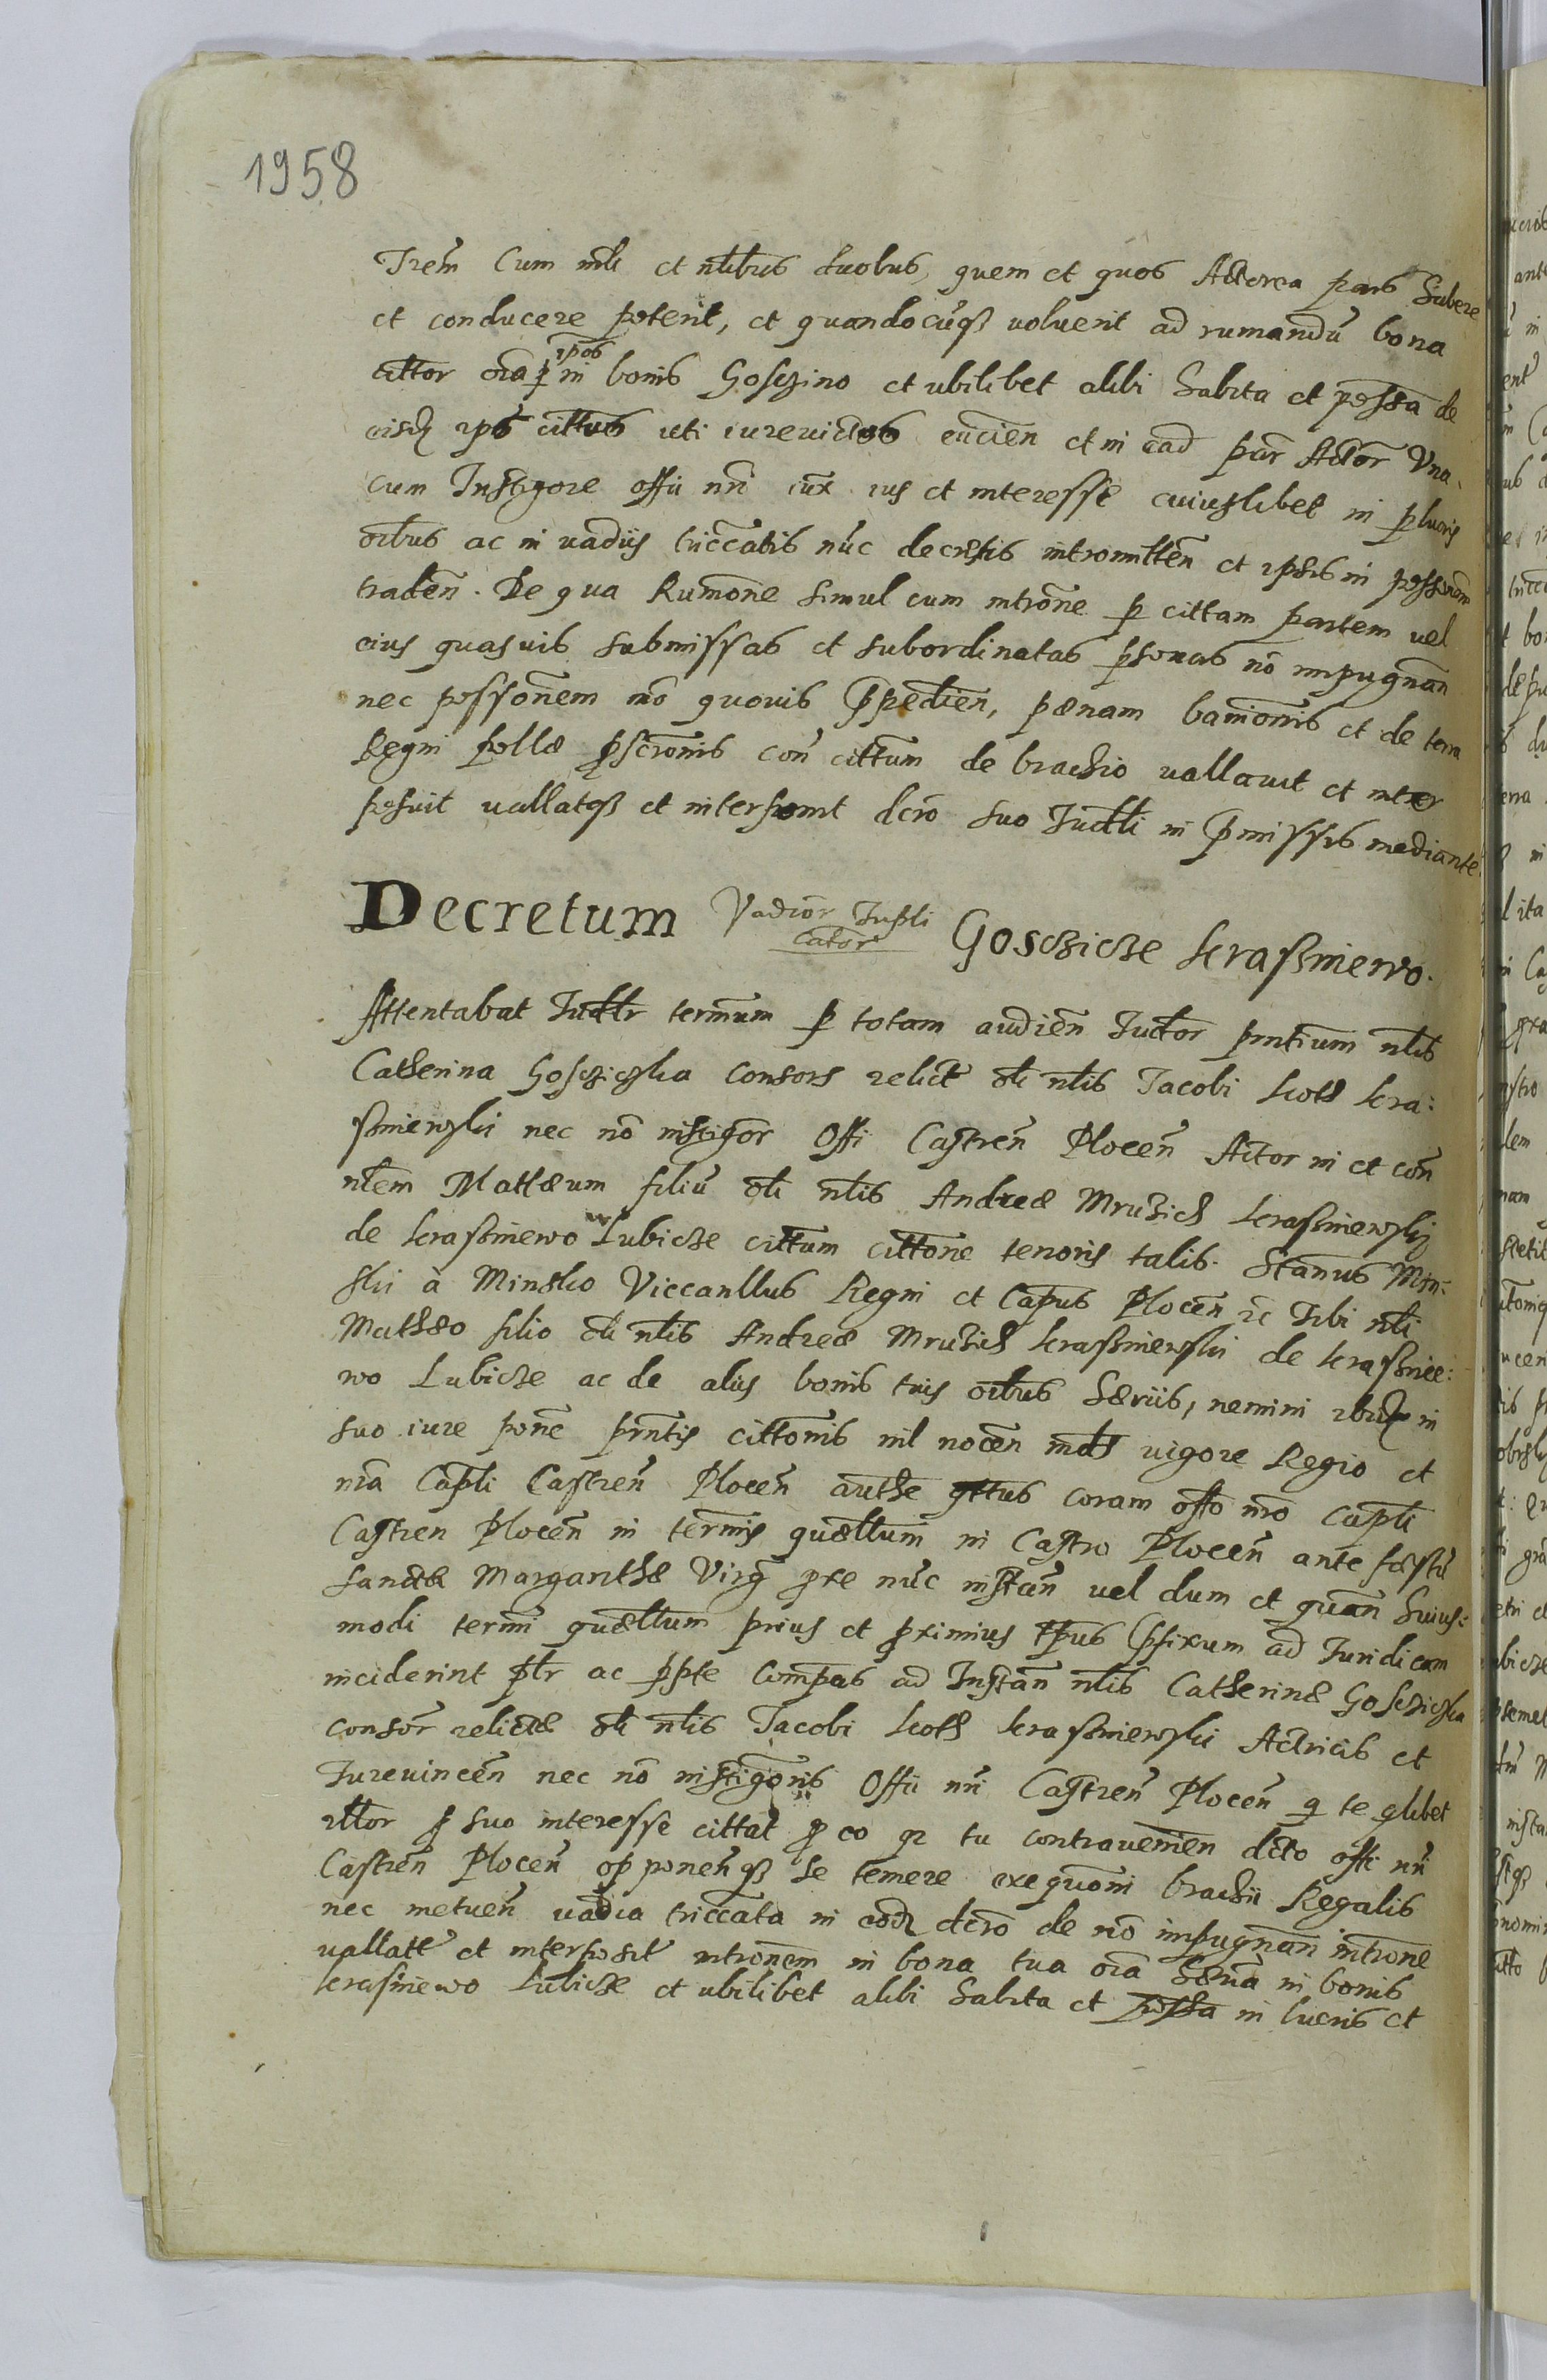 1958
Trem Cum mli et nlibus duobus, quem et quos Actorea pars habere
et conducere poterit, et quandocūqȝ voluerit ad rumandū bona
cittor oīa ipos in bonis Goslizino et ubilibet alibi habita et possa de
eisdē ipōs cittus uti iurevictos eviciēn et in ead par Actōr Vna
cum Instigōre offii nrī iux ius et interesse cuiuslibet in plurīs
oībus ac in vadiis triccatis nūc decretis intromittēn et ipsis in possionem
tradēn. De qua Rumōne simul cum introne p cittam partem vel
eius quasvis submissas et subordinatas psonas nō impugnan
nec possionem mō quovis pped̄ien, pænam bannionis et de terra
Regni pollæ pscronis con cittum de brachio vallavit et inter
posuit vallatqȝ et interponit dcrō suo Judtli in pmissis mediante
Decretum Vadior Tripli
cator Goscziczke kraßniewo.
Attentabat Judtlr termum p totam audien Juctōr pntium nlis
Catherina Goscziczka consors relict oli nlis Jacobi koth kra:
ßniewski nec nō instigōr offi Castrēn Plocēn Actor in et con
nlem Mathæum filiū oli nlis Andreæ Mruzich kraßniewskj
de kraßniewo Lubicze cittum cittone tenoris talis. Stanus Min:
ski à Minsko Viccanllus Regni et Capus Plocēn rc Tibi nli
Mathæo filio oli nlis Andreæ Mruzich kraßniewski de kraßnie:
wo Lubicze ac de aliis bonis tuis oībus hæriis, nemini in
suo iure ponē pntis cittonis nil nocēn mds vigore Regio et
mā Capli Castrēn Plocēn authe coram offo nrō Capli
Castren Plocēn in termis quællum in Castro Plocēn ante fæstū
sanctæ Margarithæ Virg pxe nūc instān vel dum et quan huius:
modi termi quællum prius et pximius tpus pfixum ad Juridicam
inciderint plr ac ppte Compas ad Instān nlis Catherinæ Goscziczka
consōr relictæ oli nlis Jacobi koth kraßniewski Actricis et
Jurevincēn nec nō instigōris Offii nrī Castrēn Plocēn q te qlibet
illor p suo interesse cittat p eo qr tu contravenien dcto offi nrī
Castrēn Plocēn opponenqȝ se temere exequōni brachii Regalis
nec metuēn vadia triccata in eodē dcrō de nō impugnan introne
vallatt et interposit introncm in bona tua oīa hæria in bonis
kraßniewo Lubicze et ubilibet alibi habita et possa in lucris et